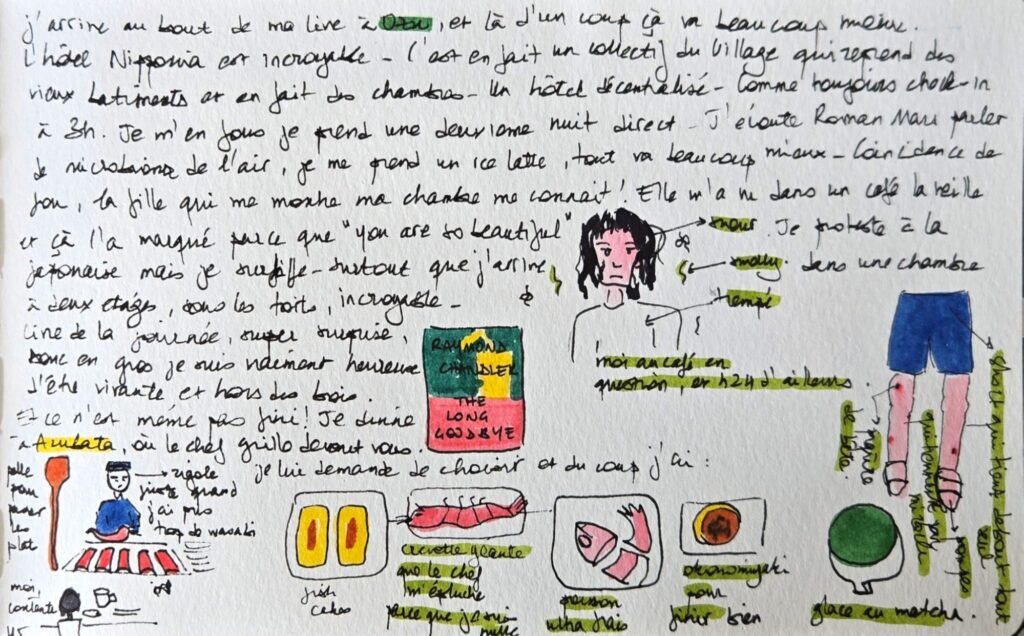 j'arrive au bout de ma live à Ozu, et là d'un coup çà va beaucoup mieux.
L'hôtel Nipponia est incroyable - C'est en fait un collectif du village qui reprend des
vieux batiments et en fait des chambres - Un hôtel décentralisé - Comme toujours check-in
à 3h. Je m'en fous je prend une deuxieme nuit direct - J'écoute Roman Mars parler
de microbiome de l'air, je me prend un ice latte, tout va beaucoup mieux - Coincidence de
fou, la fille qui me montre ma chambre me connait! Elle m'a vu dans un café la veille
et çà l'a marqué parce que "you are so beautiful"
Je proteste à la
japonaise mais je surkiffe - surtout que j'arrive
dans une chambre
à deux etages, sous les toits, incroyable -
Line de la journée, super surprise,
donc en gros je suis vraiment heureuse
d'être vivante et hors des bois.
Et ce n'est même pas fini! Je dinne
à Aubata, où le chef grille devant vous.
je lui demande de choisir et du coup j'ai :
sueur
smelly
trempé
moi au café en
question, en h24 d'ailleurs
RAYMOND
CHANDLER
THE
LONG
GOODBYE
short qui tient debout tout
seul
piqûre
de bête
pelle
pour
passer
les
plats
rigole
juste quand
j'ai pris
trop de wasabi
moi,
contente
fish
cakes
crevette géante
que le chef
m'épluche
parce que je suis
nulle
poisson
ultra frais
okonomiyaki
pour
finir bien
glace au matcha.